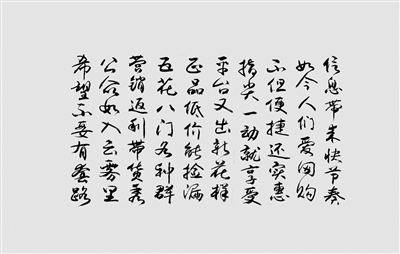 信息带来快节奏
如今人们爱网购
不但便捷还实惠
指尖一动就享受
平台又出新花样
正品低价能捡漏
五花八门各种群
营销返利带货秀
公众如入云雾里
希望不要有套路